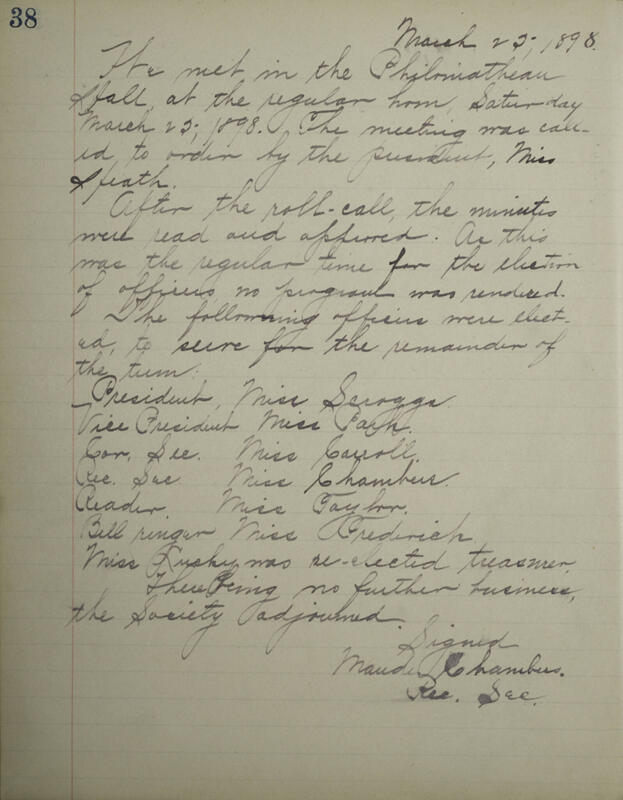 38
March 25, 1898.
We met in the Philomathean
Hall, at the regular hour, Saturday
March 25, 1898. The meeting was call-
ed to order by the president, Miss
Heath.
After the roll-call, the minutes
were read and approved. As this
was the regular time for the election
of officers no program was rendered.
The following officers were elect-
ed, to serve for the remainder of
the term:
President, Miss Scroggs.
Vice President Miss Park.
Cor. Sec. Miss Carroll.
Rec. Sec. Miss Chambers.
Reader. Miss Taylor.
Bell ringer Miss Frederick
Miss was re-elected treasurer.
There being no further business,
the Society adjourned.
Signed
Maude Chambers.
Rec. Sec.